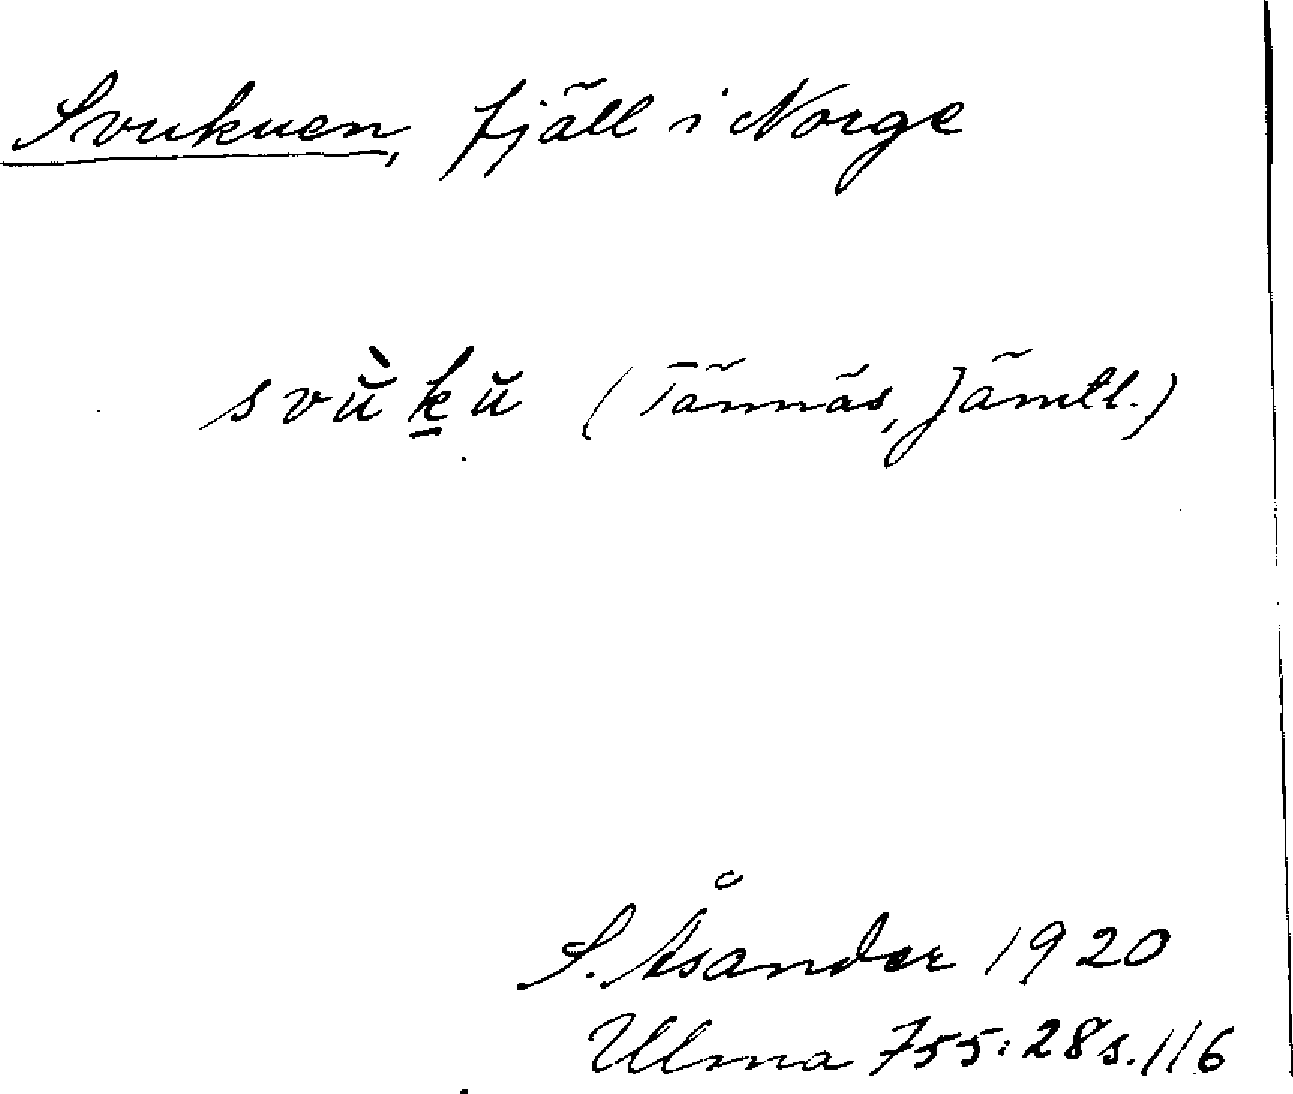 Svukuen, fjäll i Norge
svŭ̀k̲ŭ (Tännäs, Jämtl.)
S. Åsander 1920
Ulma 755:28 s. 116